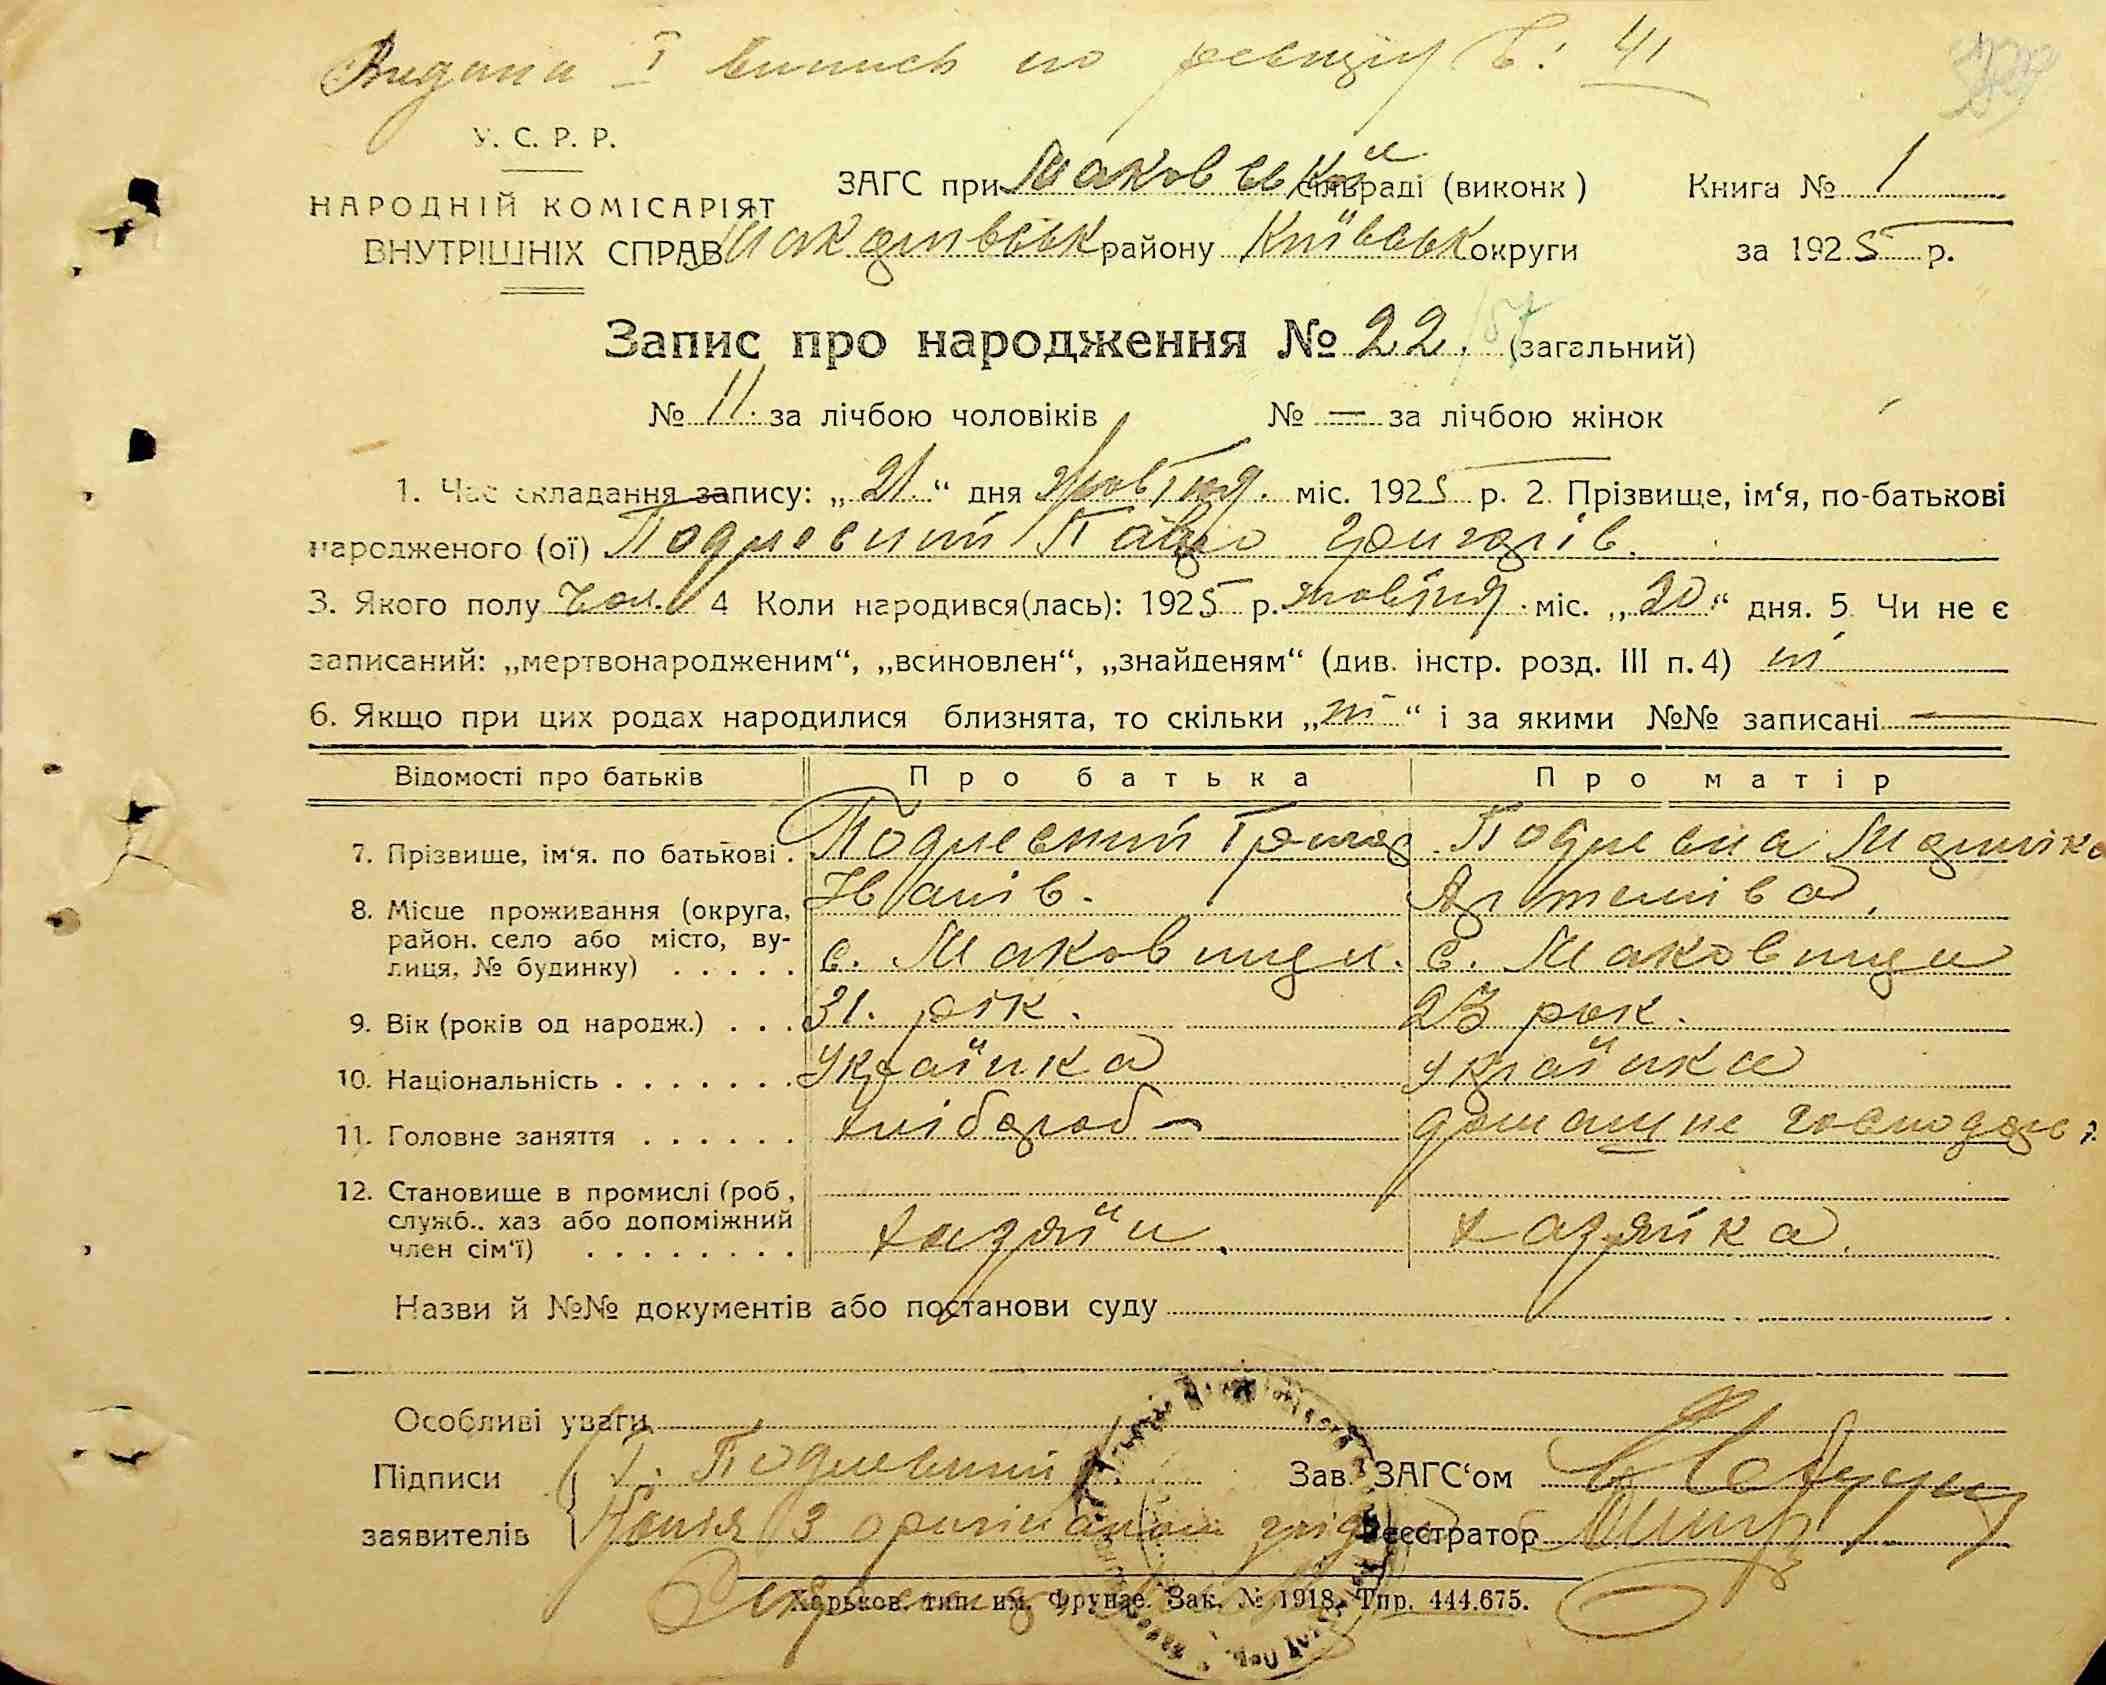 Видана І випись по реєстру № 41
У. С. Р. Р.
НАРОДНІЙ КОМІСАРІЯТ
ВНУТРІШНІХ СПРАВ
ЗАГС при Маковській сільраді (виконк) Книга № 1
Макарівськ району Київськ округи за 1925 р.
Запис про народження № 22. (загальний)
№ 11. за лічбою чоловіків № — за лічбою жінок
1. Час складання запису: „21.“ дня жовтня. міс. 1925 р. 2. Прізвище, ім‘я, по-батькові
народженого (ої) Подлесний Павло Григорів.
3. Якого полу чол. 4 Коли народився(лась): 1925 р. жовтня міс. „20“ дня. 5. Чи не є
записаний: „мертвонародженим“, „всиновлен“, „знайденям“ (див. інстр. розд. III п. 4) ні
6. Якщо при цих родах народилися близнята, то скільки „ні“ і за якими №№ записані —
Відомості про батьків Про батька Про матір
7. Прізвище, ім‘я. по батькові. Подлесний Григор Подлесна
Іванів. Артемівна.
8. Місце проживання (округа, район. село або місто, ву-
лиця, № будинку) ..... с. Маковище. с. Маковище
9. Вік (років од народж.) ... 31. рік. 23 рок.
10. Національність ....... Українка Українка
11. Головне заняття ...... хлібороб — домашнє господар
12. Становище в промислі (роб,
служб.. хаз або допоміжний
член сім‘ї) ........ хазяїн. хазяйка.
Назви й №№ документів або постанови суду
Особливі уваги
Підписи Г. Подлесний Зав. ЗАГС‘ом
заявителів Копія з оригіналом Реєстратор
Харьков. тип. им. Фрунзе. Зак. № 1918. Тир. 444.675.